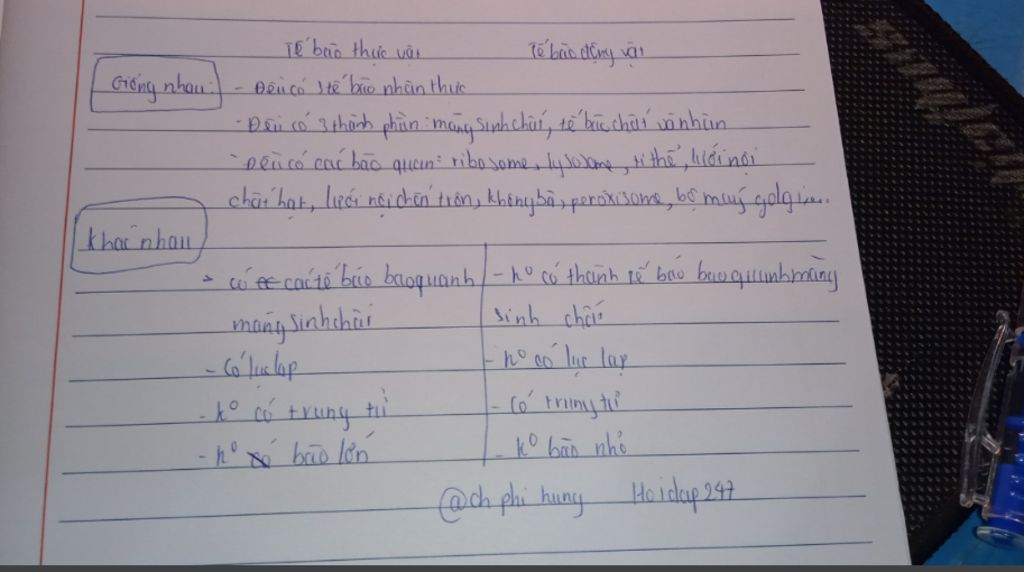 Tế bào thực vật Tế bào động vật
Giống nhau: - Đều có tế bào nhân thực
- Đều có 3 thành phần: màng sinh chất, tế bào chất và nhân
- Đều có các bào quan: ribosome, lysosome, ti thể, lưới nội
chất hạt, lưới nội chất trơn, không bào, peroxisome, bộ máy golgi....
Khác nhau
- có các tế bào bao quanh - k⁰ có thành tế bào bao quanh màng
màng sinh chất sinh chất
- Có lục lạp - k⁰ có lục lạp
- k⁰ có trung tử - Có trung tử
- k⁰ bào lớn - k⁰ bào nhỏ
@ch phi hung Hoidap247